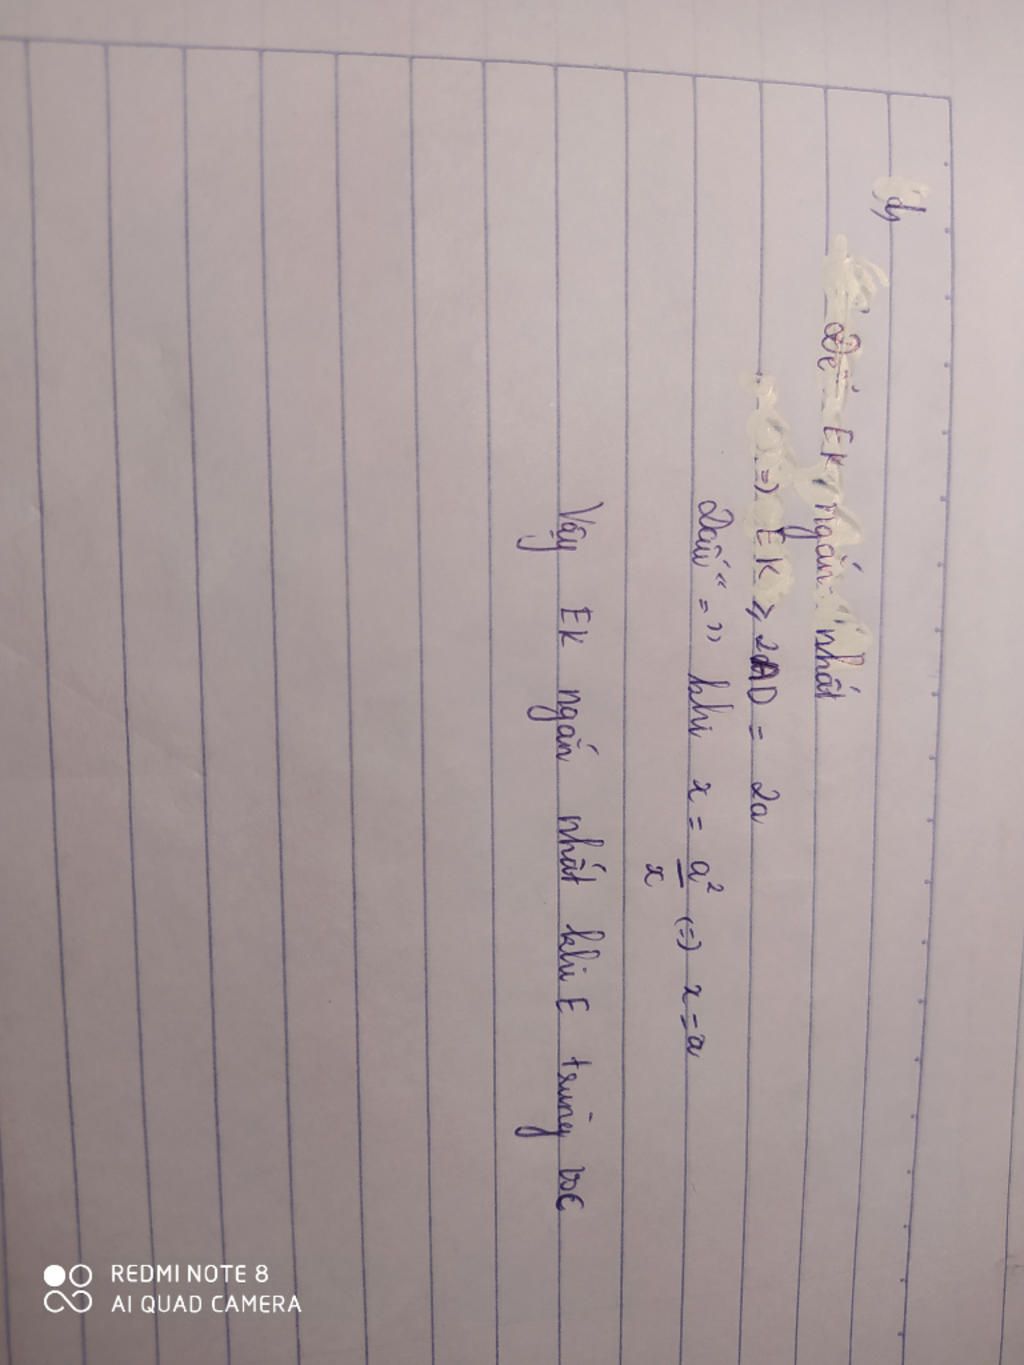 d,
Để EK ngắn nhất
=) EK ⩾ 2AD = 2a
Dấu "=" khi x = a²/x (=) x = a
Vậy EK ngắn nhất khi E trùng
REDMI NOTE 8
AI QUAD CAMERA